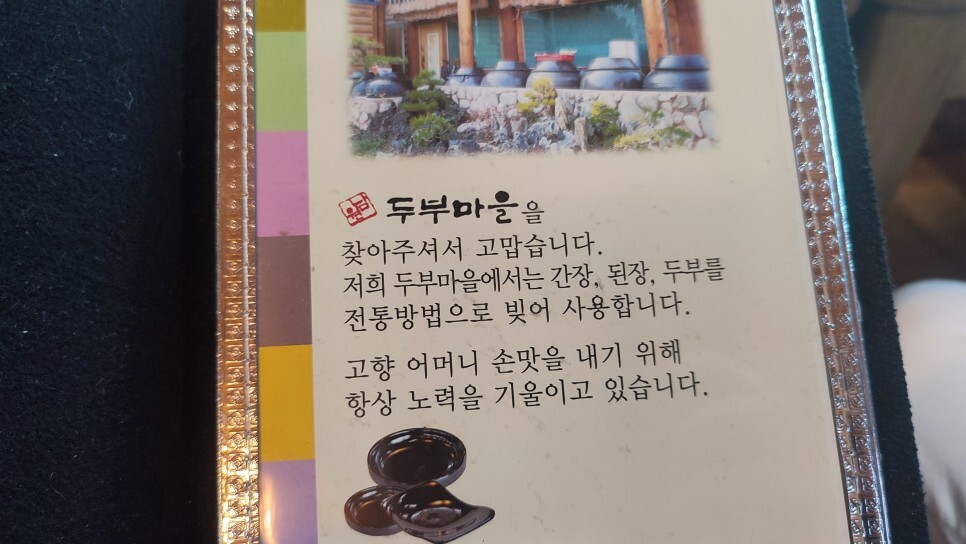 두부마을을
찾아주셔서 고맙습니다.
저희 두부마을에서는 간장, 된장, 두부를
전통방법으로 빚어 사용합니다.
고향 어머니 손맛을 내기 위해
항상 노력을 기울이고 있습니다.